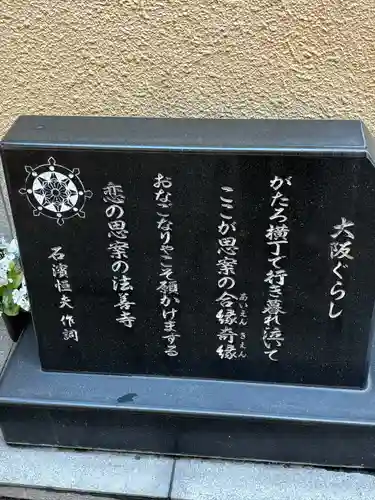 大阪ぐらし
がたろ横丁で行き暮れ泣いて
ここが思案の合縁奇縁
あいえん きえん
おなごなりゃこそ願かけまする
恋の思案の法善寺
石濱恒夫 作詞